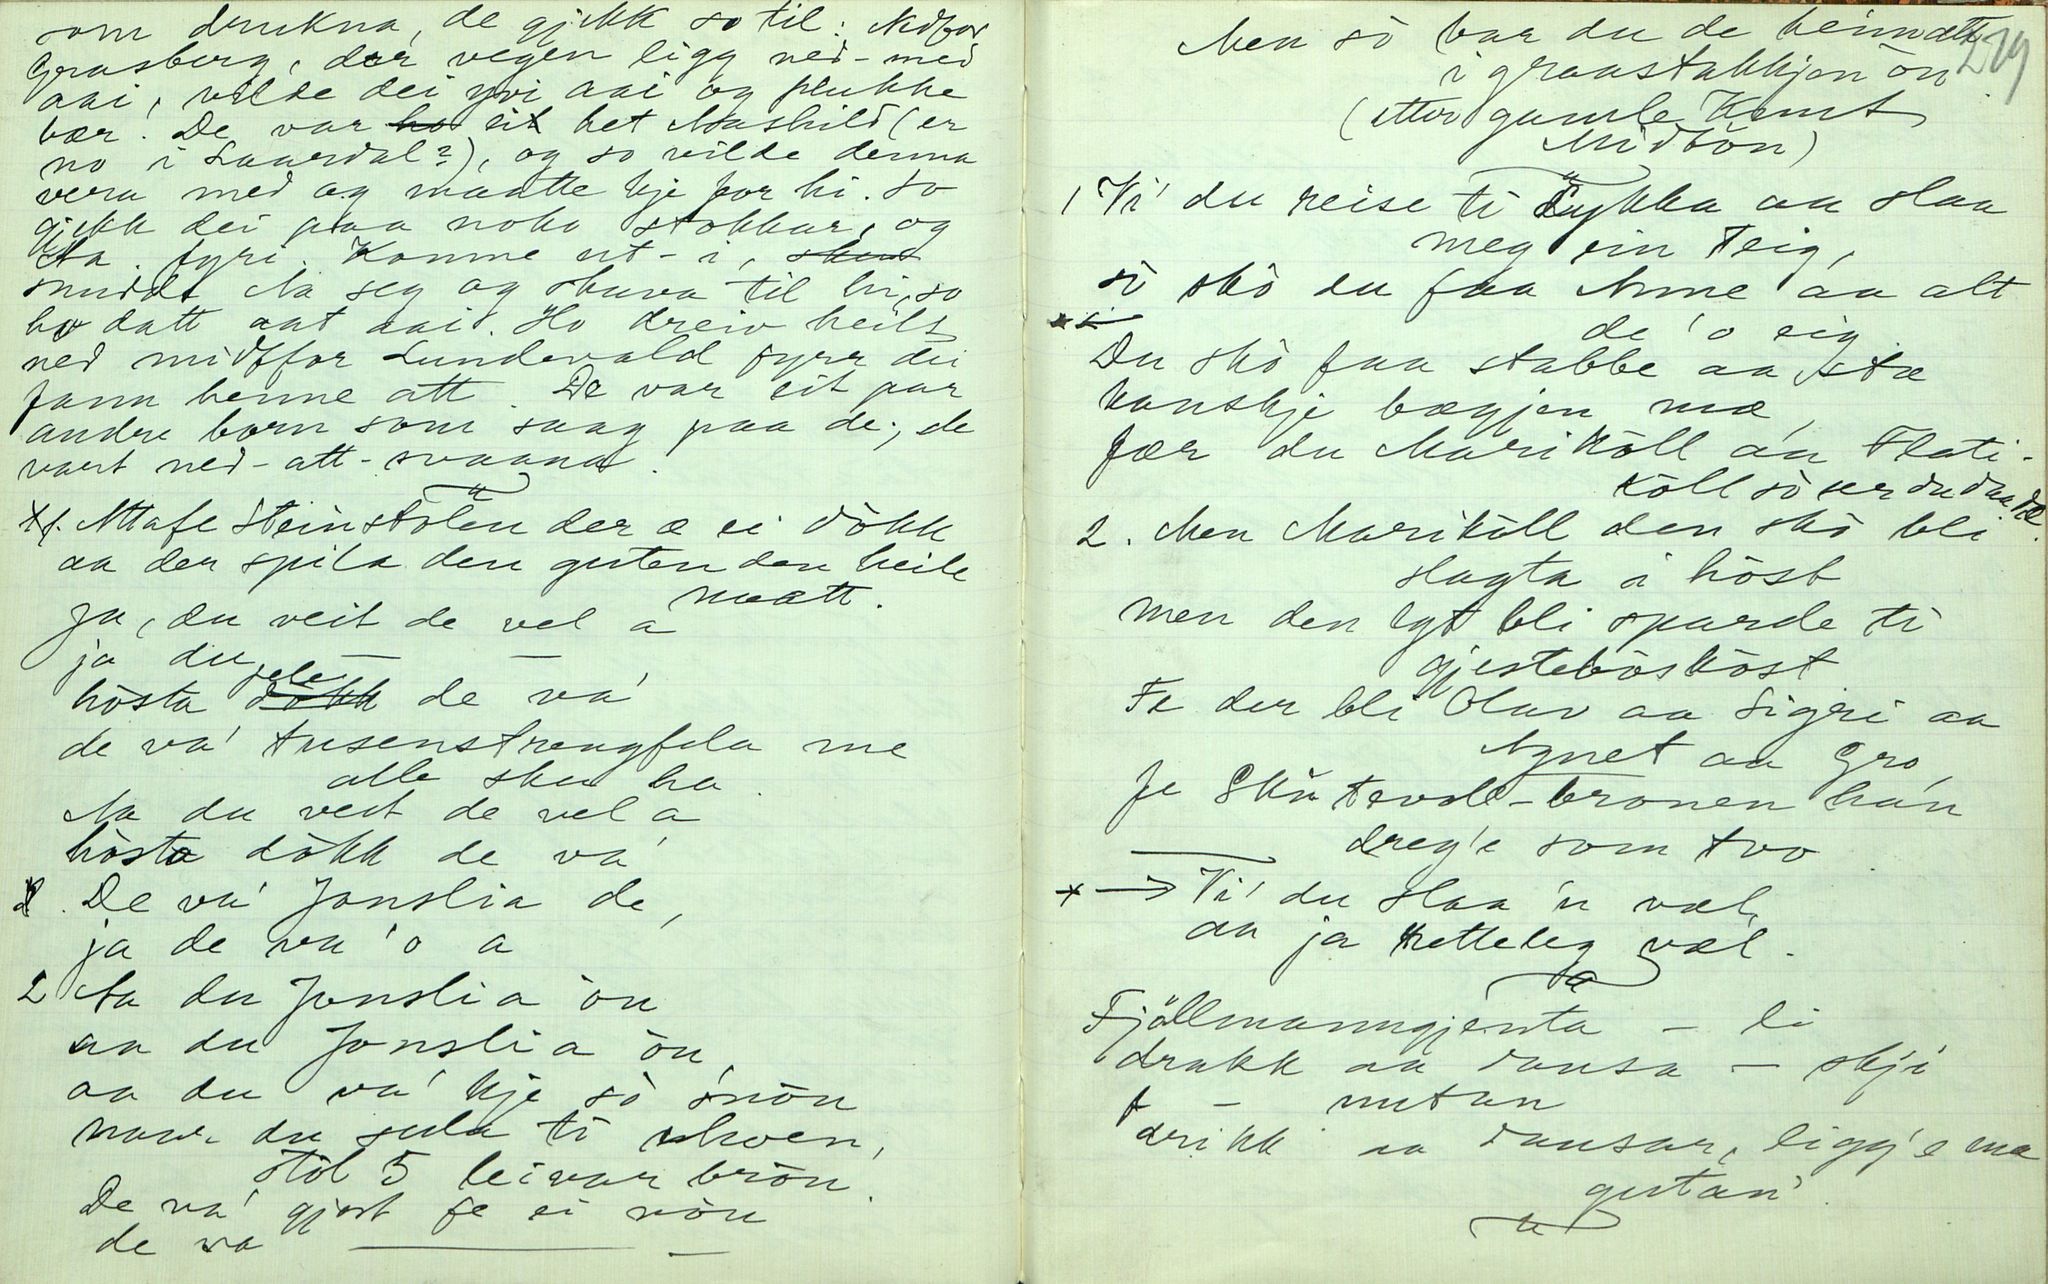 som drukna, de gjekk so til: Nedfor
Grasberg, der vegen ligg ned-med
aai, vilde dei yvi aai og plukke
bær. De var ho eit het Mashild (er
no i Laardal?), og so vilde denna
vera med og maatte kje for hi. So
gjekk dei paa noko stokkar, og
Aa fyri. Komne ut-i,
snudde Aa seg og skuva til hi, so
ho datt aat aai. Ho dreiv heilt
ned midtfor Lundevald fyrr dei
fann henne att. De var eit par
andre born som saag paa de; de
vart ned-att-svaana.
1. Attafe Steinstölen der æ ei dökk
aa der spila den guten den heile
naatt.
Ja, du veit de vel a
ja du — —
hösta fele dökk de va'
de va' tusenstrengfela me
alle sku ha.
Aa du veit de vel a
hösta dökk de va'
De va' Jonslia de,
ja de va'o a
2 Aa du Jonslia ön
aa du Jonslia ön,
aa du va' kje sö snön
naar du sula ti
stöl 5 leivar brön.
De va' gjort fe ei nön
de va — —
Men sö bar du de heimatt
i graastakkjen ön
219
(etter gamle Knut
Midbön)
1 Vi' du reise ti Lykkja aa slaa
meg ein teig,
sö skö du faa Anne aa alt
de 'o eig
Du skö faa stabbe aa sta
kanskje bægjen mæ
fær du Mariköll aa Flati-
köll sö ser du daa de.
2. Men Mariköll den skö bli
slagta i höst
men den lyt bli sparde ti
gjestebösköst
Fe der bli Olav aa Sigri aa
Agnet aa Gro
fe Skö tevsle-bronen han
dreg'e som tvo
x → Vi' du slaa 'n væl,
aa ja retteleg væl.
Fjöllmanngjenta — li
drakk aa dansa — skji
— nutan
drikk aa dansar, ligg'e mæ
gutan'.